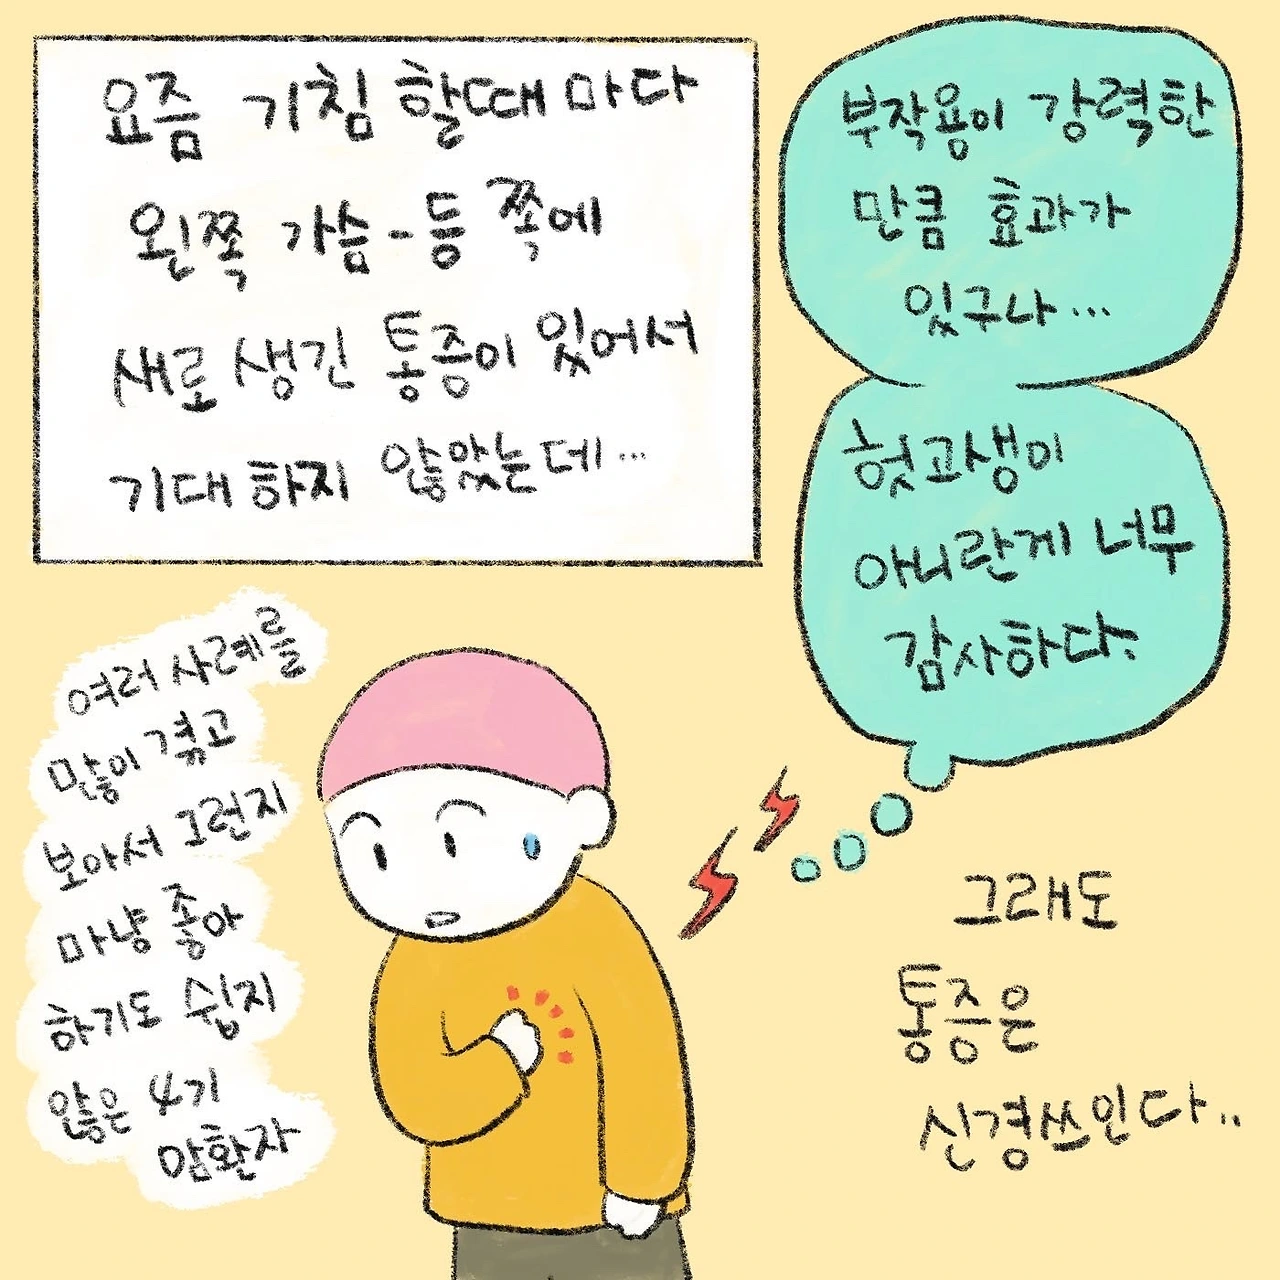 요즘 기침 할때 마다
왼쪽 가슴-등 쪽에
새로 생긴 통증이 있어서
기대 하지 않았는데...
부작용이 강력한
만큼 효과가
있구나...
헛고생이
아니란게 너무
감사하다.
여러 사례를
많이 겪고
보아서 그런지
마냥 좋아
하기도 쉽지
않은 4기
암환자
그래도
통증은
신경쓰인다..